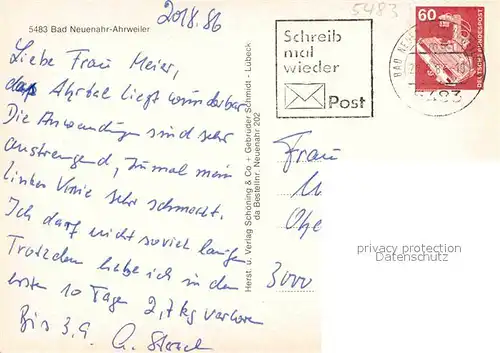 5483 Bad Neuenahr-Ahrweiler
20.8.86
5483
Liebe Frau Meier,
das Ahrtal liegt wunderbar.
Die Anwendungen sind sehr
anstrengend, zumal mein
linkes Knie sehr schmerzt.
Ich darf nicht soviel laufen
Trotzdem habe ich in den
ersten 10 Tagen 2,7 kg verloren
Bis 3.9.
Herst. u. Verlag Schöning & Co + Gebrüder Schmidt - Lübeck
da Bestellnr. Neuenahr 202
Schreib
mal
wieder
Post
60
DEUTSCHE BUNDESPOST
BAD NEUE
5483
Frau
3000
privacy protection
Datenschutz